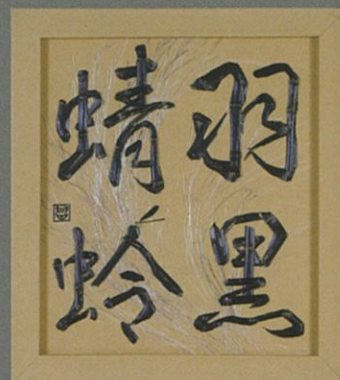 羽黒
蜻蛉